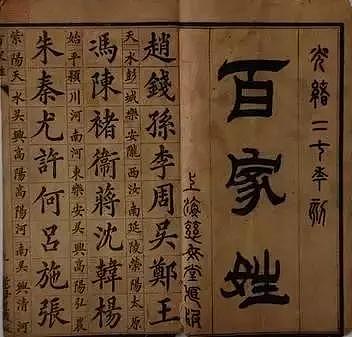 光緒二七年刻
百家姓
上海慈母堂
趙錢孫李周吳鄭王
天水彭城樂安隴西汝南延陵滎陽太原
馮陳褚衛蔣沈韓楊
始平潁川河南河東樂安吳興高陽弘農
朱秦尤許何呂施張
滎陽天水吳興高陽高陽河南吳興清河